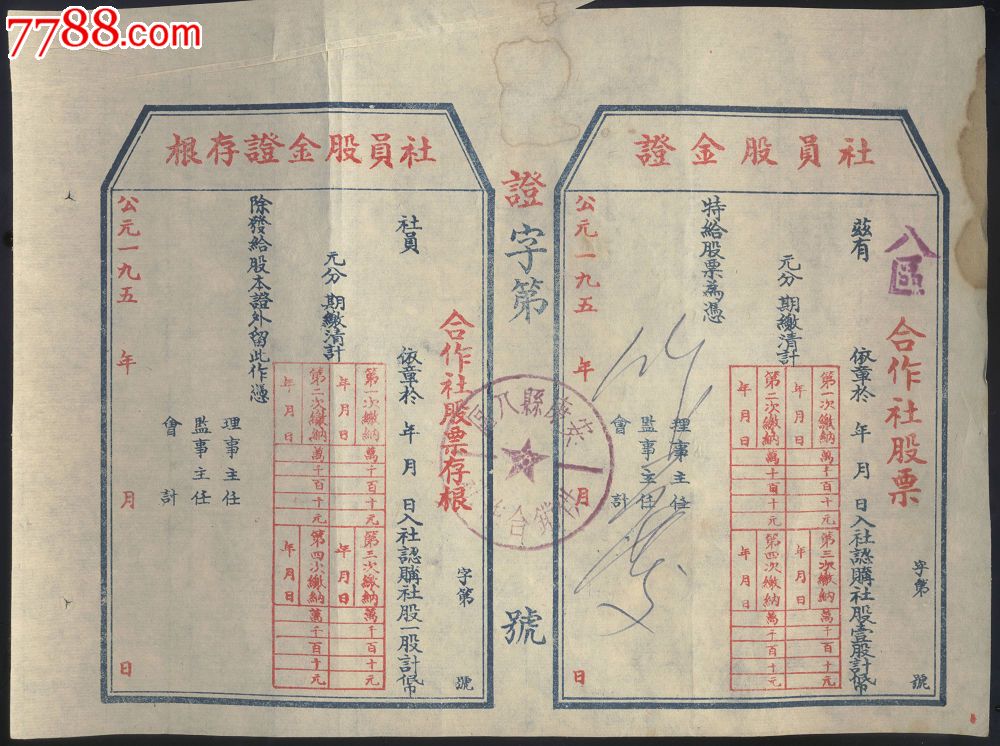 7788.com
社員股金證
八區
合作社股票
字第 號
茲有 依章於 年 月 日入社認購社股壹股計
元分 期繳清計
第一次繳納
年 月 日
萬千百十元
第二次繳納
年 月 日
萬千百十元
第三次繳納
年 月 日
萬千百十元
第四次繳納
年 月 日
萬千百十元
特給股票為憑
理事主任
監事主任
會計
公元一九五 年 月 日
證字第 號
縣八區
合
社員股金證存根
合作社股票存根
字第 號
社員 依章於 年 月 日入社認購社股一股計
元分 期繳清計
第一次繳納
年 月 日
萬千百十元
第二次繳納
年 月 日
萬千百十元
第三次繳納
年 月 日
萬千百十元
第四次繳納
年 月 日
萬千百十元
除發給股本證外留此作憑
理事主任
監事主任
會計
公元一九五 年 月 日